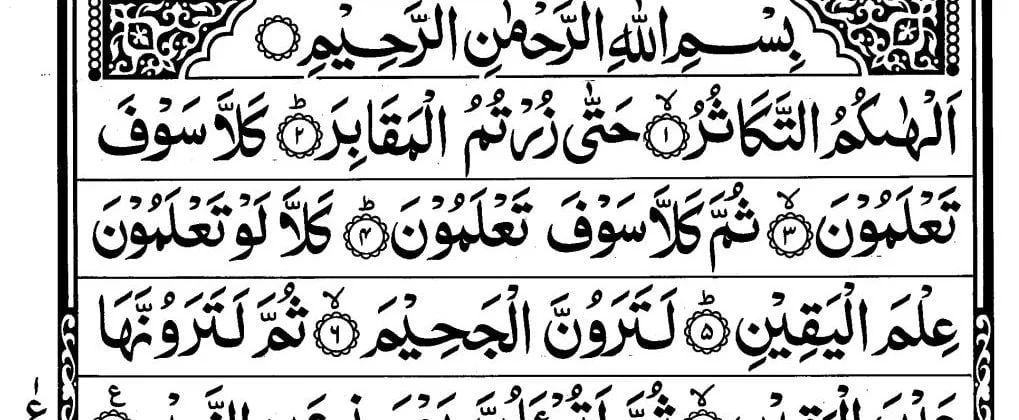 بِسْمِ اللهِ الرَّحْمٰنِ الرَّحِيْمِ ○
اَلْهٰىكُمُ التَّكَاثُرُ ۙ﴿۱﴾ حَتّٰى زُرْتُمُ الْمَقَابِرَ ؕ﴿۲﴾ كَلَّا سَوْفَ
تَعْلَمُوْنَ ۙ﴿۳﴾ ثُمَّ كَلَّا سَوْفَ تَعْلَمُوْنَ ؕ﴿۴﴾ كَلَّا لَوْ تَعْلَمُوْنَ
عِلْمَ الْيَقِيْنِ ؕ﴿۵﴾ لَتَرَوُنَّ الْجَحِيْمَ ۙ﴿۶﴾ ثُمَّ لَتَرَوُنَّهَا